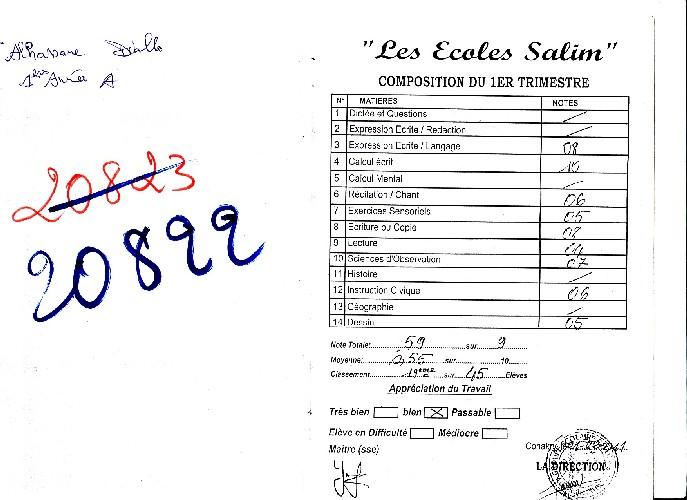 Alhassane Diallo
1ère Année A
20823
20899
"Les Ecoles Salim"
COMPOSITION DU 1ER TRIMESTRE
N° MATIERES NOTES
1 Dictée et Questions /
2 Expression Ecrite / Redaction /
3 Expression Ecrite / Langage 08
4 Calcul écrit 10
5 Calcul Mental /
6 Récitation / Chant 06
7 Exercices Sensoriels 05
8 Ecriture ou Copie
9 Lecture
10 Sciences d'Observation 07
11 Histoire /
12 Instruction Civique 06
13 Géographie /
14 Dessin 05
Note Totale: 59 sur 9
Moyenne: 6,55 sur 10
Classement: 19ème sur 45 Elèves
Appréciation du Travail
Très bien bien X Passable
Elève en Difficulté Médiocre
Maître (sse)
Conakry
LA DIRECTION